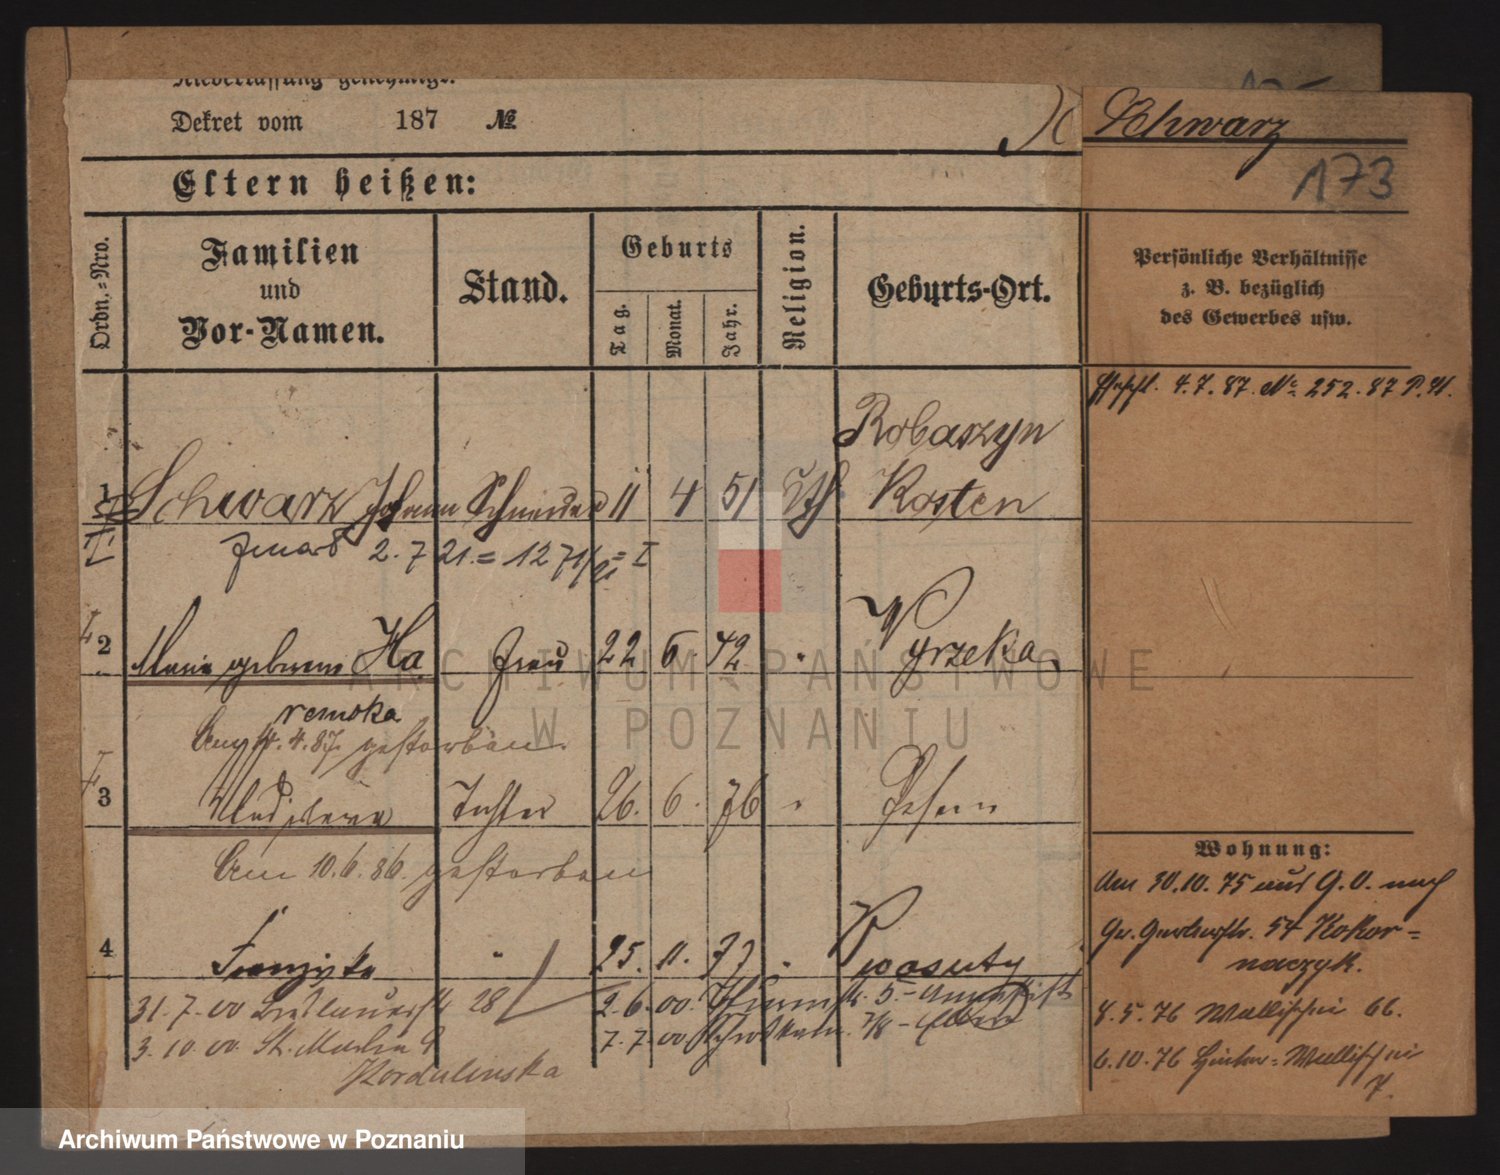 Niederlassung genehmigt.
Dekret vom 187 №
Schwarz
173
Eltern heißen:
Ordn.-Nro.
Familien
und
Vor-Namen.
Stand.
Geburts
Tag.
Monat.
Jahr.
Religion.
Geburts-Ort.
Persönliche Verhältnisse
z. B. bezüglich
des Gewerbes usw.
4.7.87. No 252.87 P.
Robaszyn
1 Schwarz Johann Schneider 11 4 51 Kth Kosten
2.7.21. = 1271/21 = I
2 Marie geborene Ha Frau 22 6 42 " Wyrzeka
remska
Am 4.4.87. gestorben.
3 Tochter 26. 6. 76 " Posen
Am 10.6.86. gestorben
4 Franziska " 25. 11. 77 "
31.7.00 Breslauerstr 28 2.6.00. 5.-
3.10.00 St. Martin 7.7.00
Kordulinska
Wohnung:
Am 30.10.75 aus G. O. nach
Gr. Gerberstr. 54 Kokor=
naczyk.
8.5.76 Wallischei 66.
6.10.76 Hinter-Wallischei
7.
ARCHIWUM PAŃSTWOWE
W POZNANIU
Archiwum Państwowe w Poznaniu